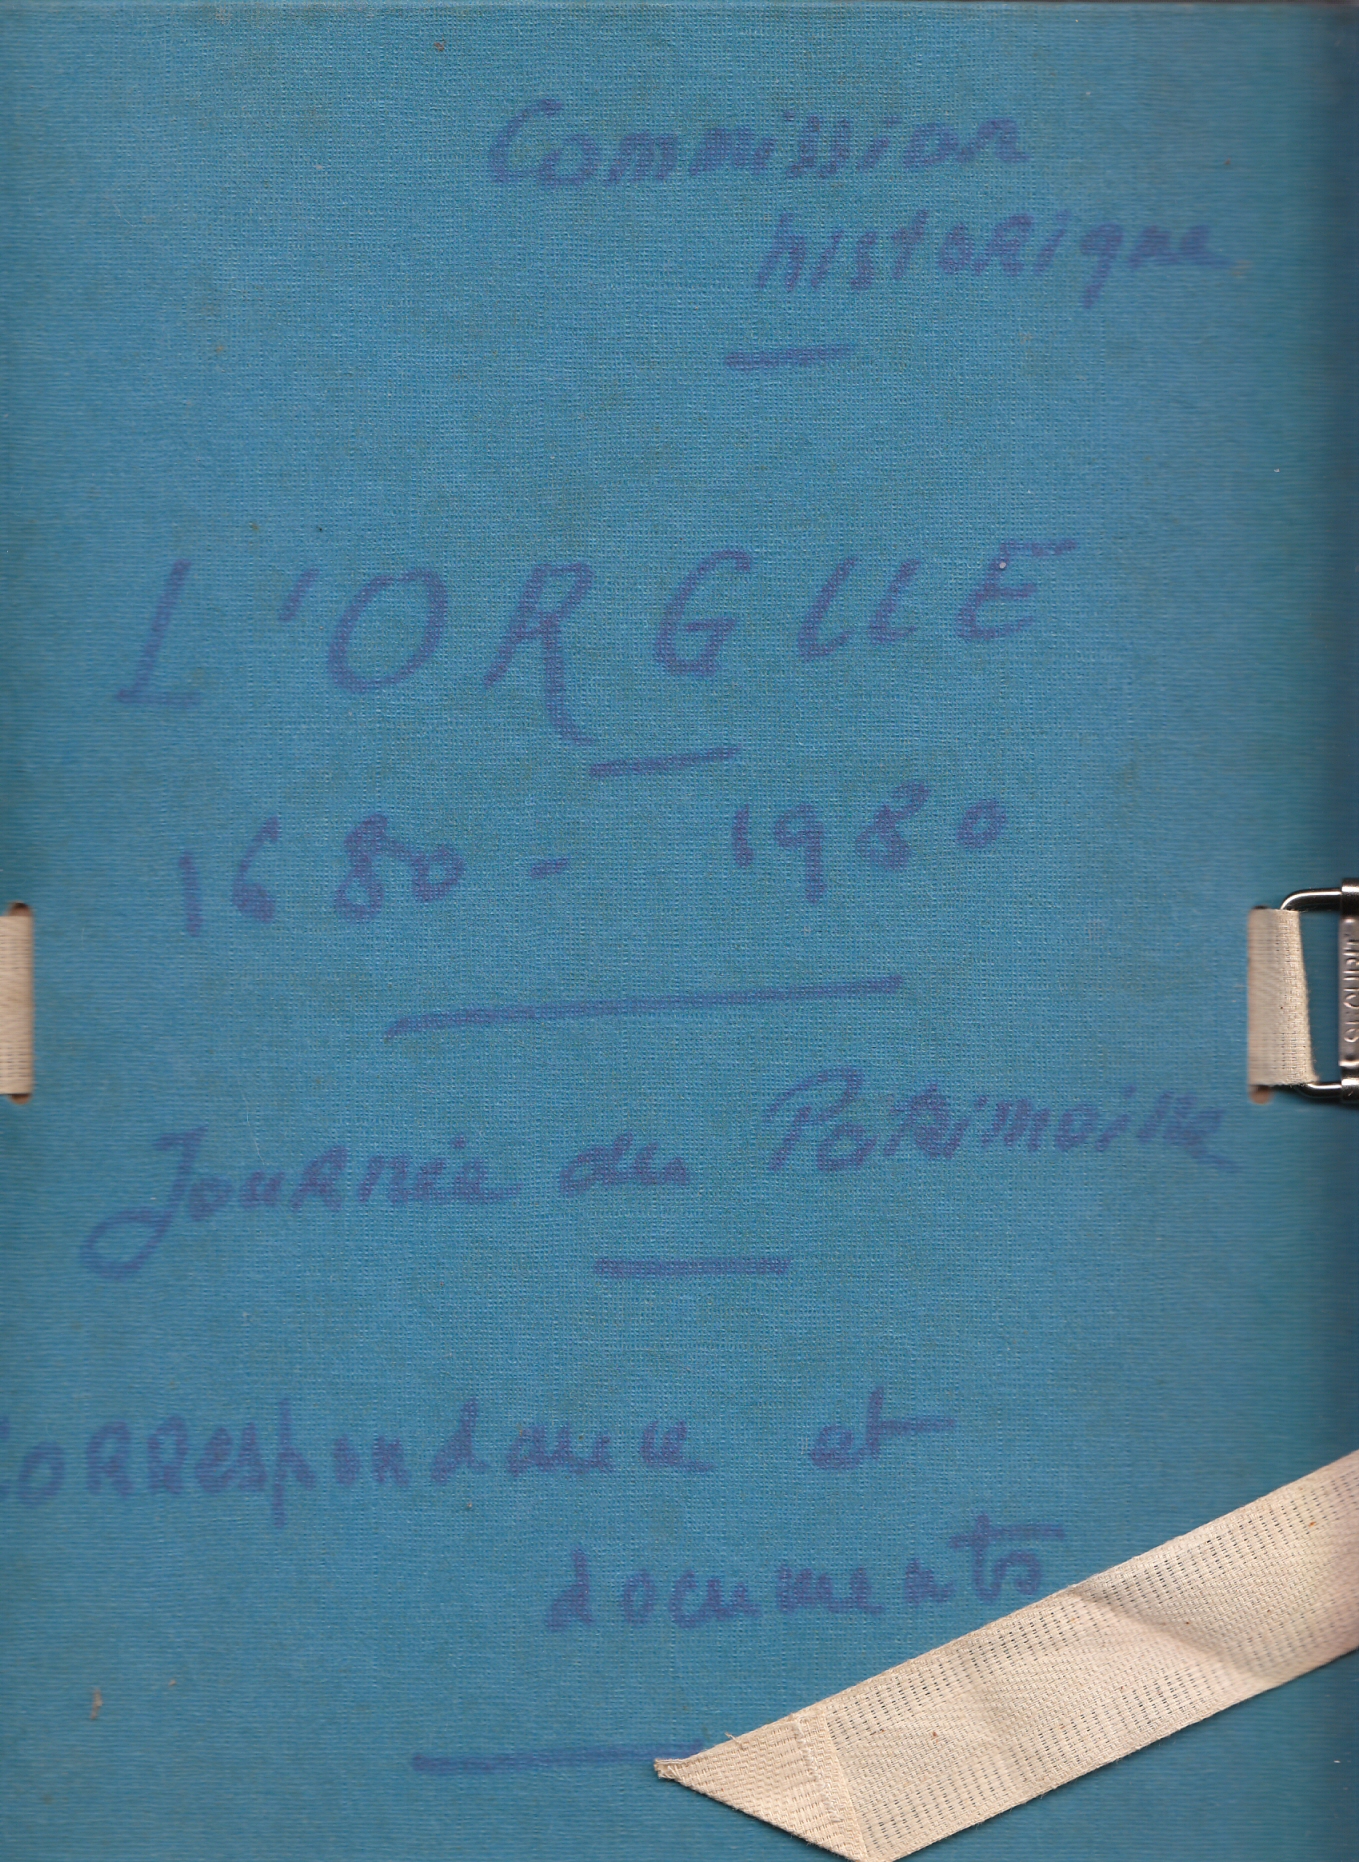 Commission
historique
L'ORGUE
1680 - 1980
Journée du Patrimoine
Correspondance et
documents